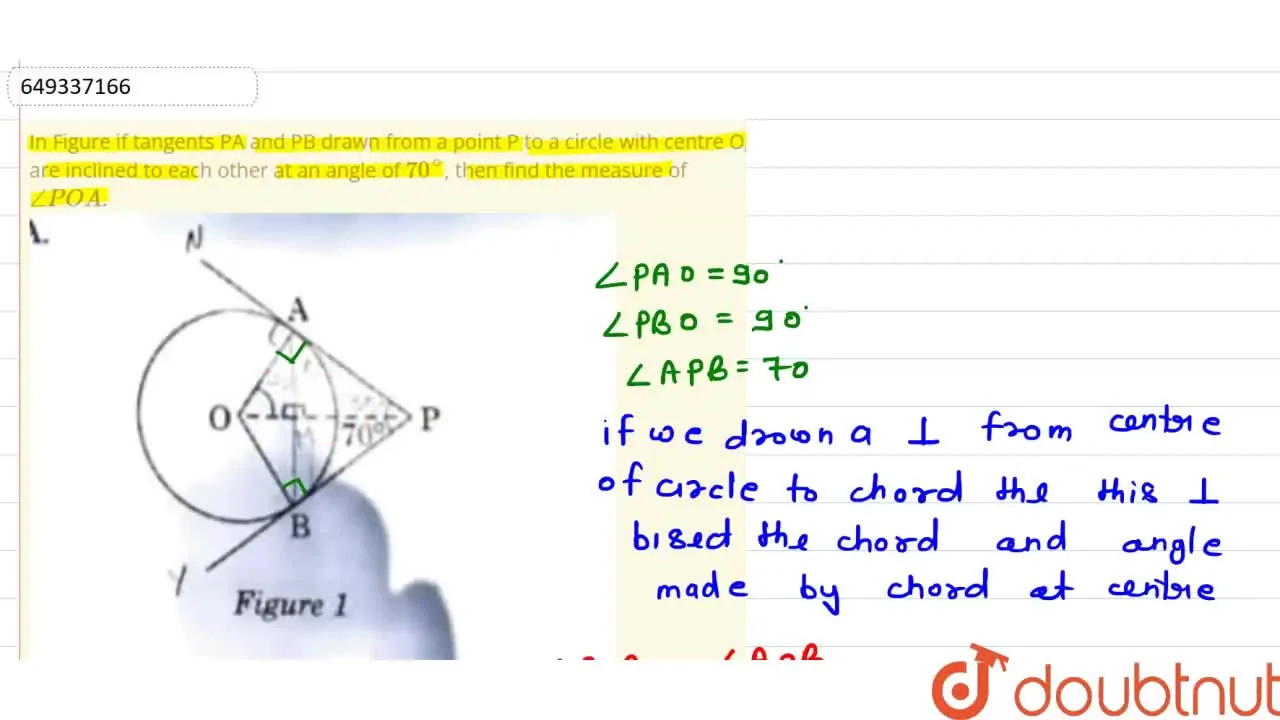 649337166
In Figure if tangents PA and PB drawn from a point P to a circle with centre O,
are inclined to each other at an angle of 70°, then find the measure of
∠POA.
A.
N
A
O
70°
P
B
Y
Figure 1
∠PAO = 90°
∠PBO = 90°
∠APB = 70
if we drown a ⊥ from centre
of circle to chord the this ⊥
bised the chord and angle
made by chord at centre
∠AOB
doubtnut